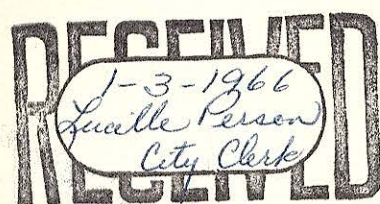 RECEIVED
1-3-1966
Lucille Person
City Clerk
RECEIVED